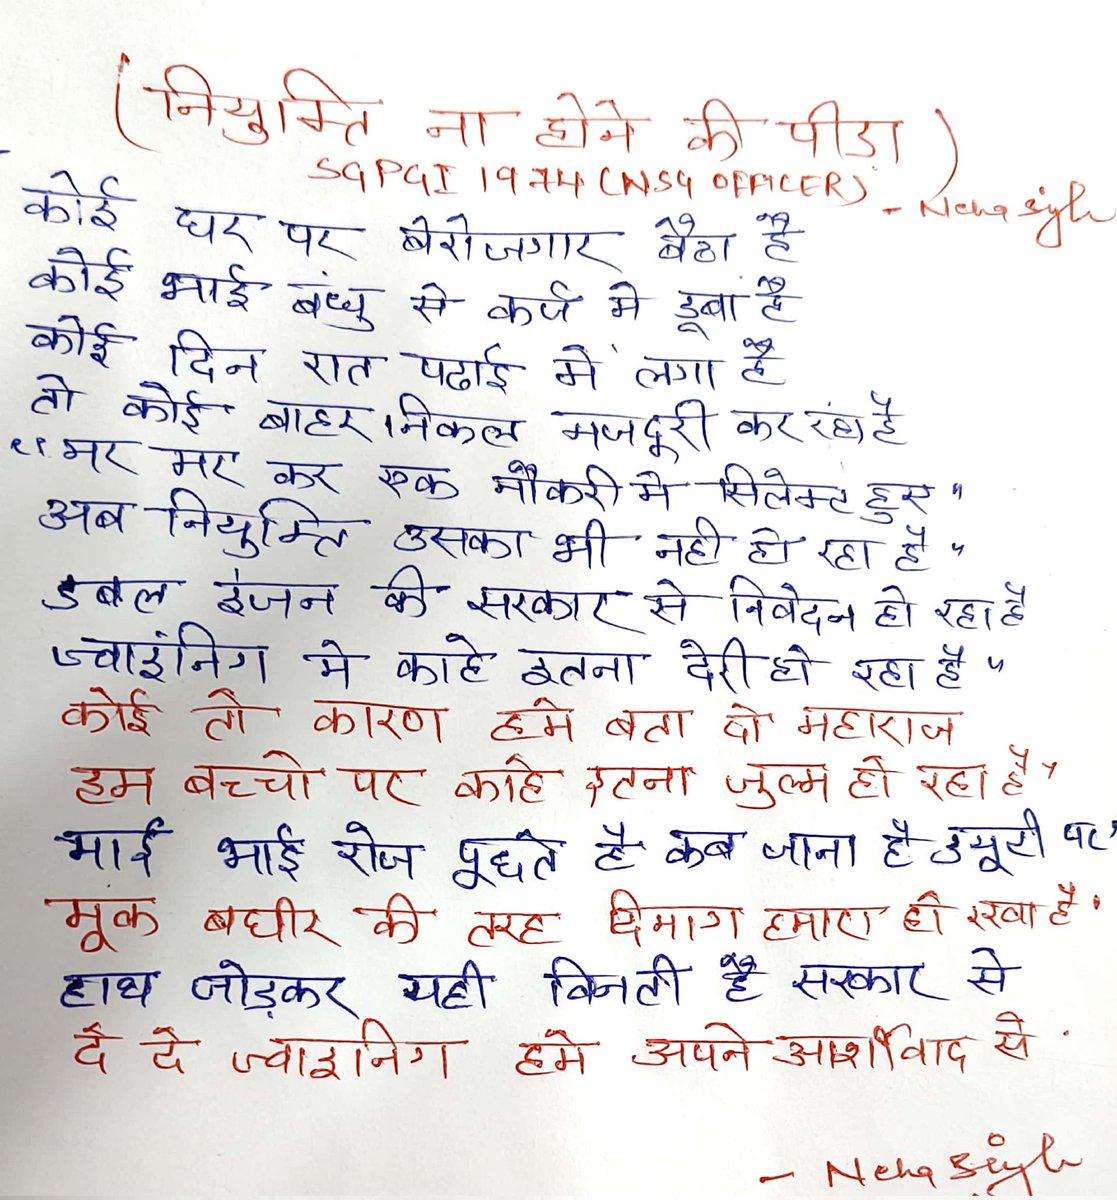 (नियुक्ति ना होने की पीडा)
SGPGI 1974 (NSG OFFICER)
- Neha Singh
कोई घर पर बेरोजगार बैठा है
कोई भाई बंधु से कर्ज मे डूबा है
कोई दिन रात पढाई में लगा है
तो कोई बाहर निकल मजदूरी कर रहा है
"मर मर कर एक नौकरी मे सिलेक्ट हुए"
अब नियुक्ति उसका भी नही हो रहा है"
डबल इंजन की सरकार से निवेदन हो रहा है
ज्वाइंनिग मे काहे इतना देरी हो रहा है"
कोई तो कारण हमे बता दो महाराज
हम बच्चो पर काहे इतना जुल्म हो रहा है"
भाई भाई रोज पूछते है कब जाना है ड्यूटी पर'
मूक बघीर की तरह दिमाग हमारा हो रखा है'
हाथ जोड़कर यही विनती है सरकार से
दे दे ज्वाइनिग हमे अपने आर्शीवाद से.
- Neha Singh